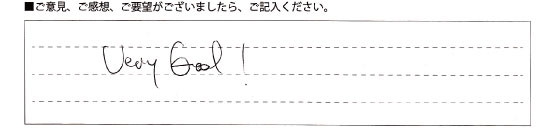 ■ご意見、ご感想、ご要望がございましたら、ご記入ください。
Very Good!